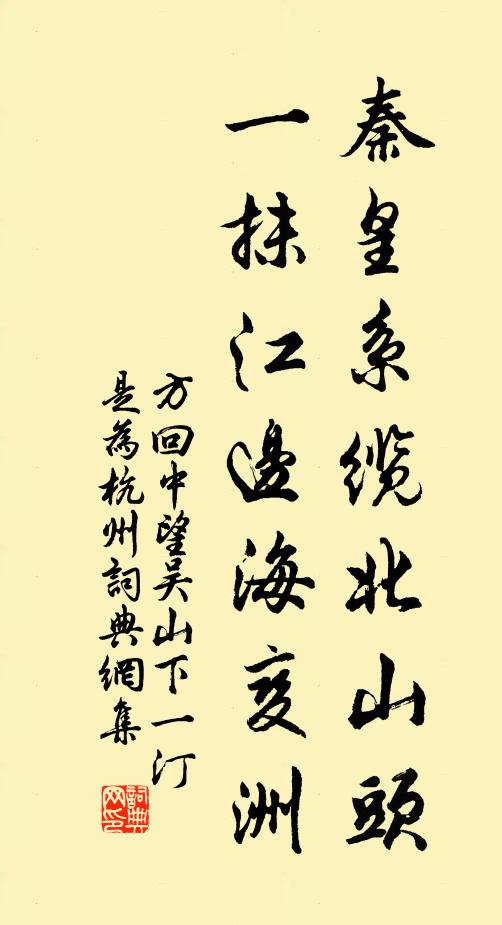 秦皇系缆北山頭
一抹江邊海变洲
方回中望吴山下一汀
是為杭州詞典網集
詞典網印